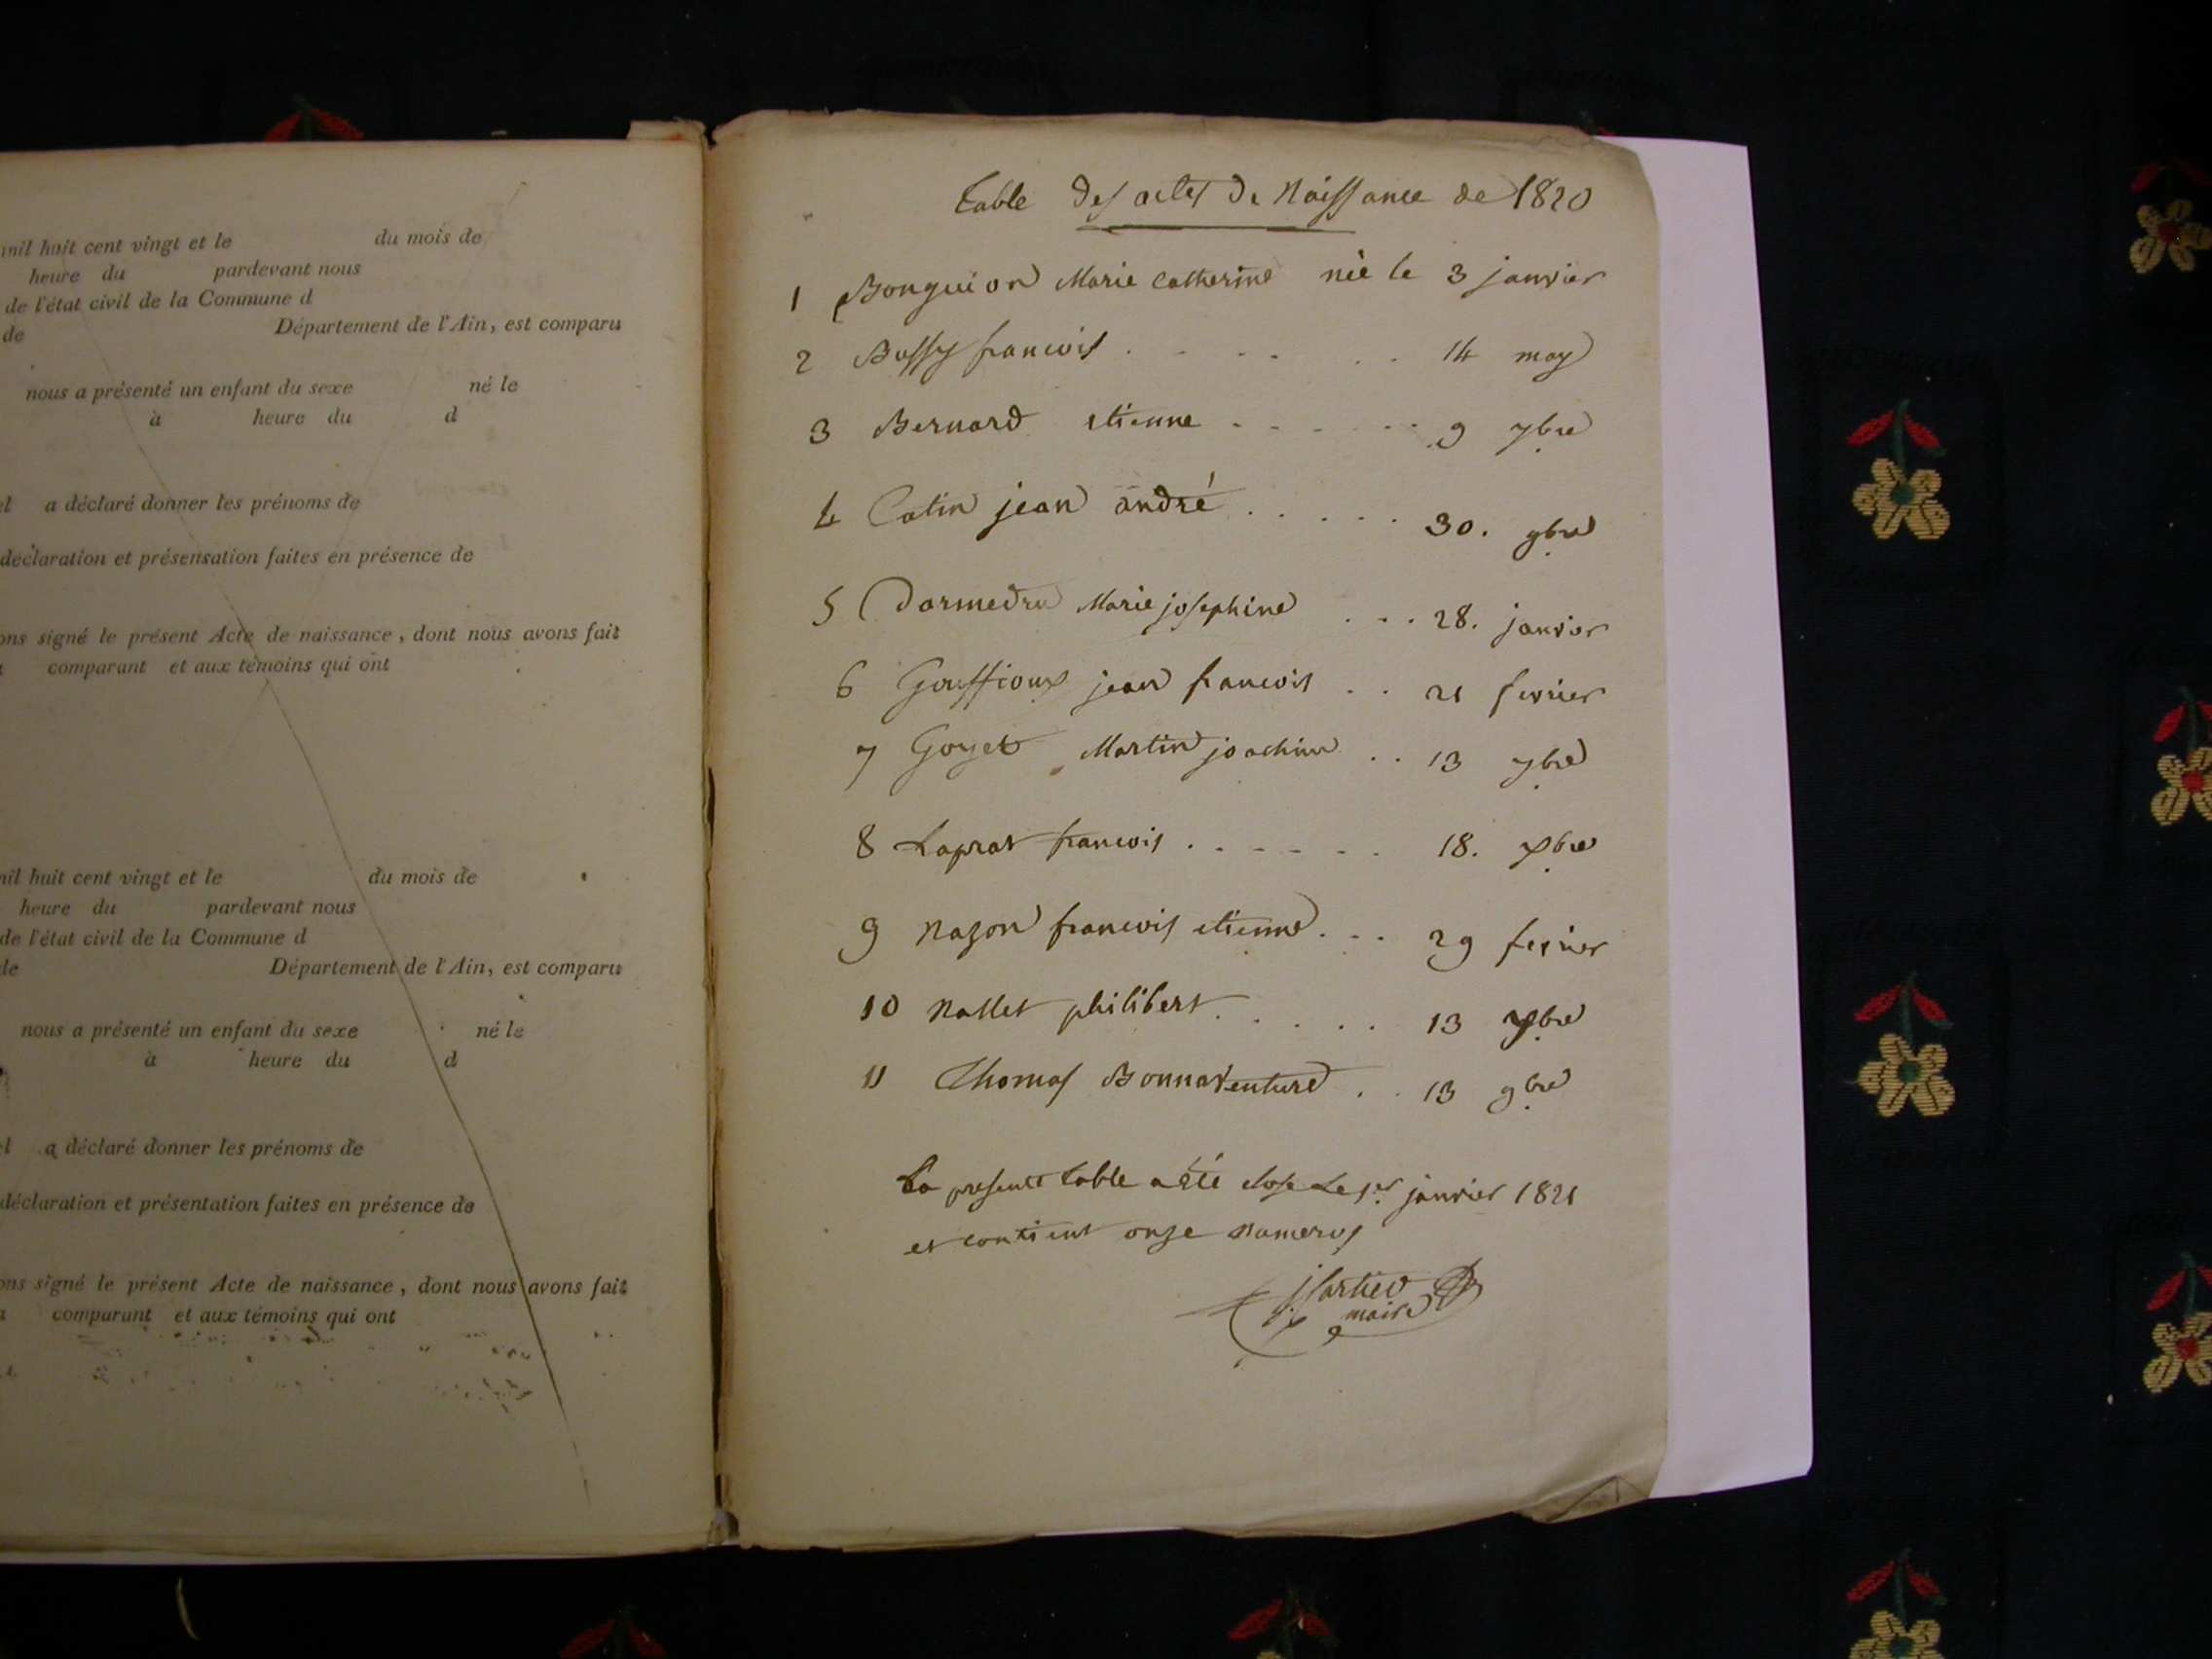 mil huit cent vingt et le du mois de
heure du pardevant nous
de l'état civil de la Commune d
de Département de l'Ain, est comparu
nous a présenté un enfant du sexe né le
à heure du d
a déclaré donner les prénoms de
déclaration et présensation faites en présence de
ons signé le présent Acte de naissance, dont nous avons fait
comparant et aux témoins qui ont
mil huit cent vingt et le du mois de
heure du pardevant nous
de l'état civil de la Commune d
de Département de l'Ain, est comparu
nous a présenté un enfant du sexe né le
à heure du d
a déclaré donner les prénoms de
déclaration et présentation faites en présence de
ons signé le présent Acte de naissance, dont nous avons fait
comparant et aux témoins qui ont
table des actes de Naissance de 1820
1 Bonguion Marie Catherine née le 3 janvier
2 Bussy francois . . . . . . 14 may
3 Bernard etienne . . . . . . 9 7bre
4 Catin jean andré . . . . . 30. 9bre
5 Darmedru Marie josephine . . . 28. janvier
6 Gouffioux jean francois . . 21 fevrier
7 Goyet Martin joachim . . 13 7bre
8 Laprat francois . . . . . . 18. Xbre
9 Nazon francois etienne . . . 29 fevrier
10 Nallet philibert . . . . . 13 7bre
11 Thomas Bonnaventure . . 13 9bre
La presente table a été close Le 1er janvier 1821
et contient onze numeros
maire